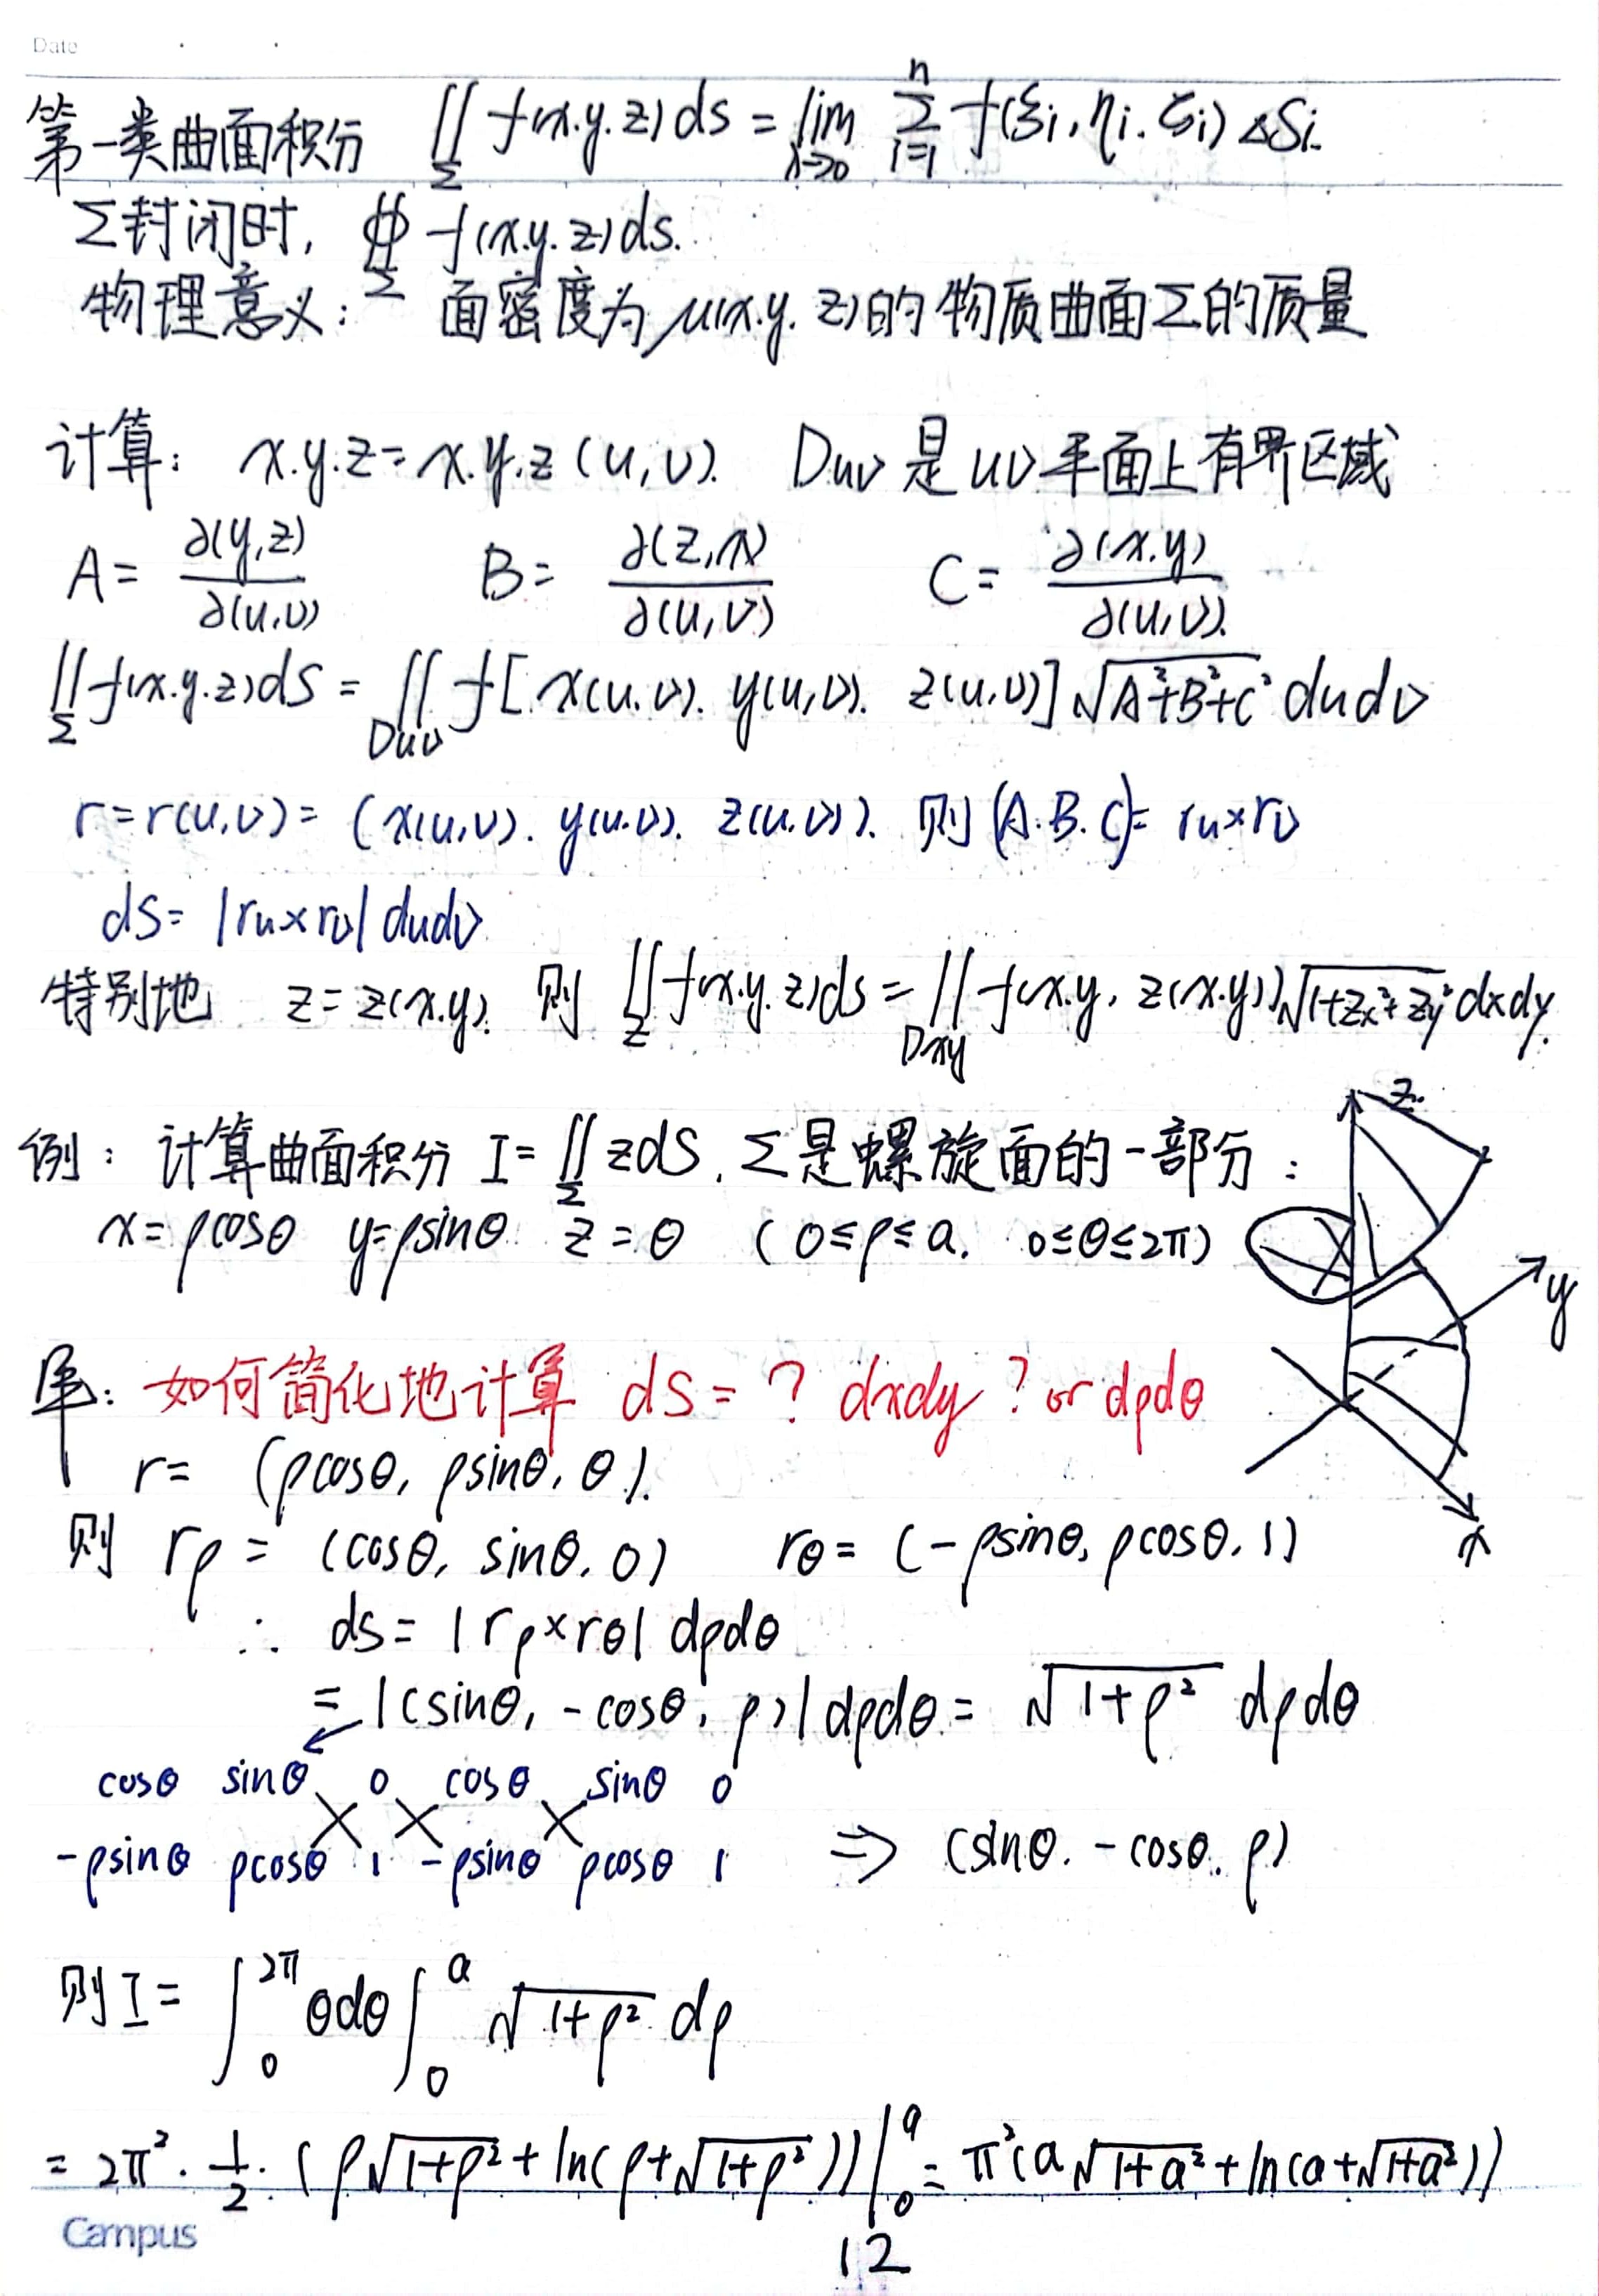 Date
第一类曲面积分 ∬_Σ f(x.y.z)ds = lim_{λ→0} Σ_{i=1}^{n} f(ξi, ηi. ζi) ΔSi.
Σ封闭时, ∯_Σ f(x.y.z)ds.
物理意义: 面密度为μ(x.y.z)的物质曲面Σ的质量
计算: x.y.z = x.y.z (u,v). Duv 是 uv 平面上有界区域
A = ∂(y,z)/∂(u,v) B = ∂(z,x)/∂(u,v) C = ∂(x.y)/∂(u,v).
∬_Σ f(x.y.z)dS = ∬_Duv f[x(u.v). y(u,v). z(u,v)] √(A²+B²+C²) dudv
r = r(u,v) = (x(u,v). y(u.v). z(u.v)). 则 (A.B.C) = ru×rv
dS = |ru×rv| dudv
特别地 z = z(x.y). 则 ∬_Σ f(x.y.z)ds = ∬_Dxy f(x.y, z(x.y)) √(1+Zx²+Zy²) dxdy.
例: 计算曲面积分 I = ∬_Σ zdS, Σ是螺旋面的一部分:
x = ρcosθ y = ρsinθ z = θ (0≤ρ≤a. 0≤θ≤2π)
z
y
x
解: 如何简化地计算 dS = ? dxdy ? or dρdθ
r = (ρcosθ, ρsinθ, θ).
则 rρ = (cosθ, sinθ, 0) rθ = (-ρsinθ, ρcosθ, 1)
∴ ds = |rρ×rθ| dρdθ
= |(sinθ, -cosθ, ρ)| dρdθ = √(1+ρ²) dρdθ
cosθ sinθ 0 cosθ sinθ 0
-ρsinθ ρcosθ 1 -ρsinθ ρcosθ 1 ⇒ (sinθ. -cosθ. ρ)
则 I = ∫_0^{2π} θdθ ∫_0^a √(1+ρ²) dρ
= 2π² · 1/2 · (ρ√(1+ρ²) + ln(ρ+√(1+ρ²)))|_0^a = π²(a√(1+a²) + ln(a+√(1+a²)))
Campus
12